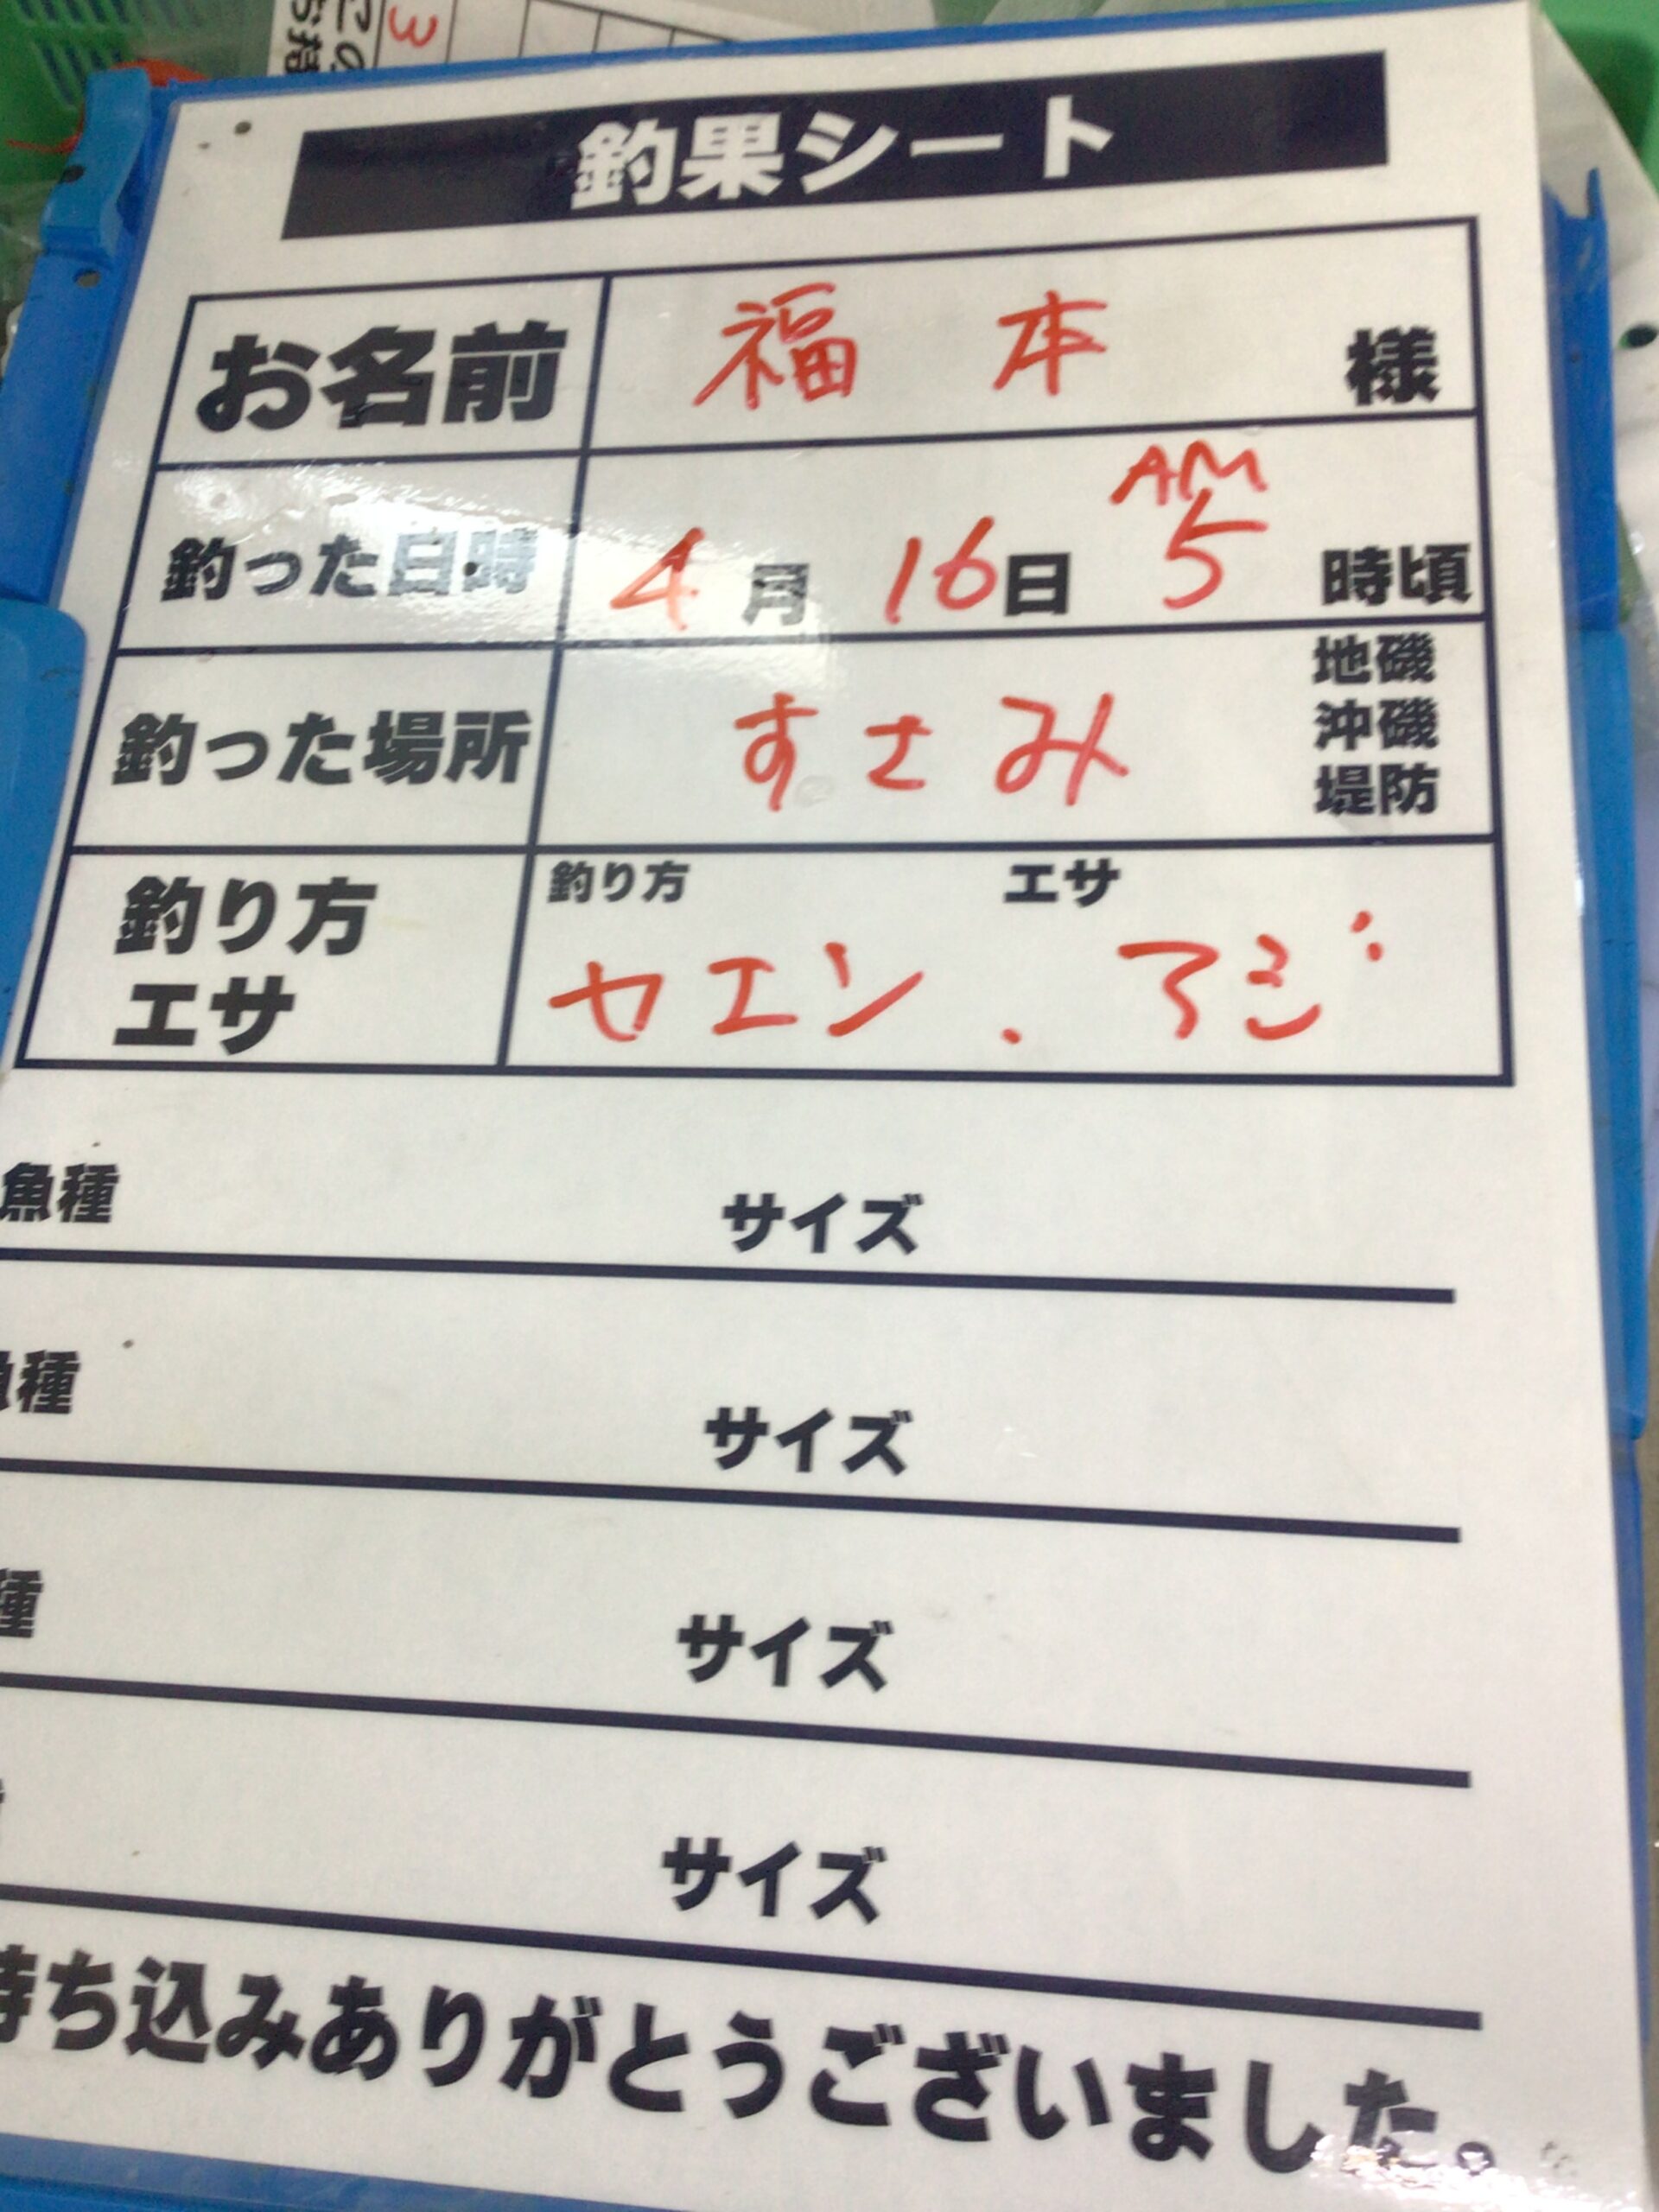 3
釣果シート
お名前 福本 様
AM
釣った日時 4月16日 5時頃
地磯
釣った場所 すさみ 沖磯
堤防
釣り方 エサ
釣り方 ヤエン . アジ
エサ
魚種 サイズ
魚種 サイズ
種 サイズ
サイズ
持ち込みありがとうございました。